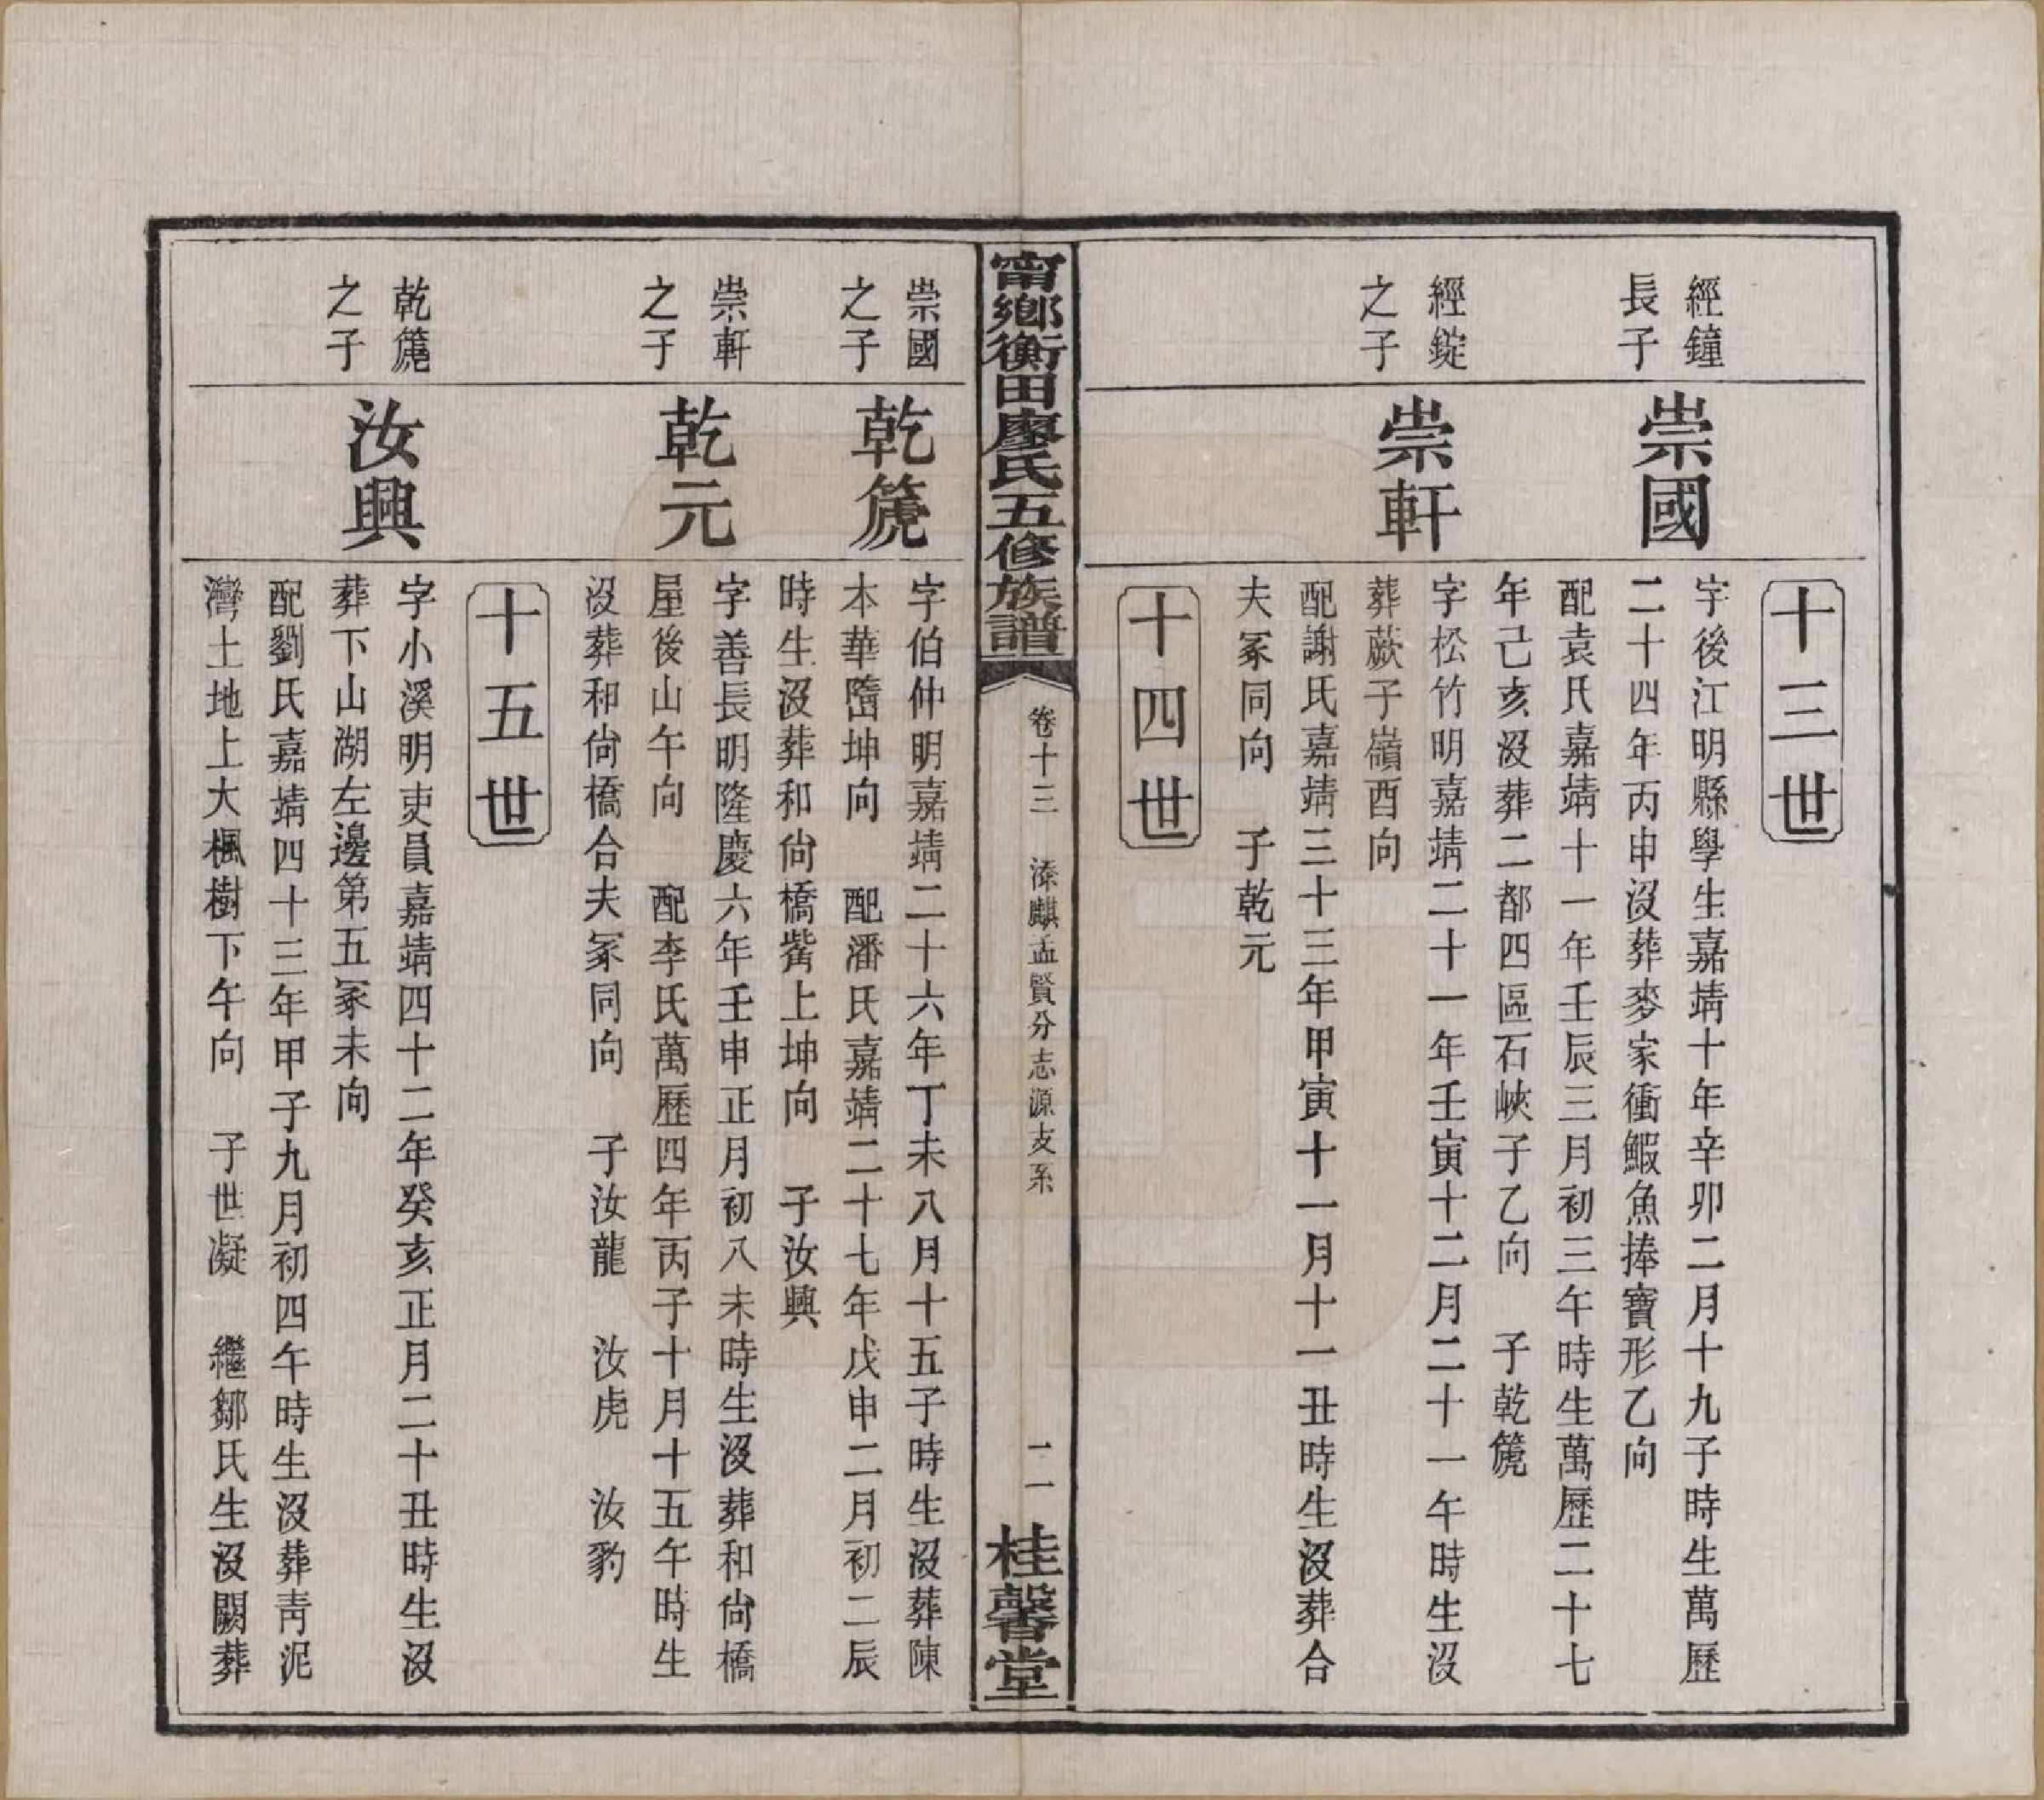 十三世
經鐘
長子
崇國
字後江明縣學生嘉靖十年辛卯二月十九子時生萬歷
二十四年丙申沒葬麥家衝鰕魚捧寶形乙向
配袁氏嘉靖十一年壬辰三月初三午時生萬歷二十七
年己亥沒葬二都四區石峽子乙向　子乾篪
經錠
之子
崇軒
字松竹明嘉靖二十一年壬寅十二月二十一午時生沒
葬蕨子嶺酉向
配謝氏嘉靖三十三年甲寅十一月十一丑時生沒葬合
夫冢同向　子乾元
十四世
甯鄉衡田廖氏五修族譜
卷十三　添麒孟賢分志源支系
二一
桂馨堂
崇國
之子
乾篪
字伯仲明嘉靖二十六年丁未八月十五子時生沒葬陳
本華㙐坤向　配潘氏嘉靖二十七年戊申二月初二辰
時生沒葬和尙橋觜上坤向　子汝興
崇軒
之子
乾元
字善長明隆慶六年壬申正月初八未時生沒葬和尙橋
屋後山午向　配李氏萬歷四年丙子十月十五午時生
沒葬和尙橋合夫冢同向　子汝龍　汝虎　汝豹
十五世
乾篪
之子
汝興
字小溪明吏員嘉靖四十二年癸亥正月二十丑時生沒
葬下山湖左邊第五冢未向
配劉氏嘉靖四十三年甲子九月初四午時生沒葬靑泥
灣土地上大楓樹下午向　子世凝　繼鄒氏生沒闕葬